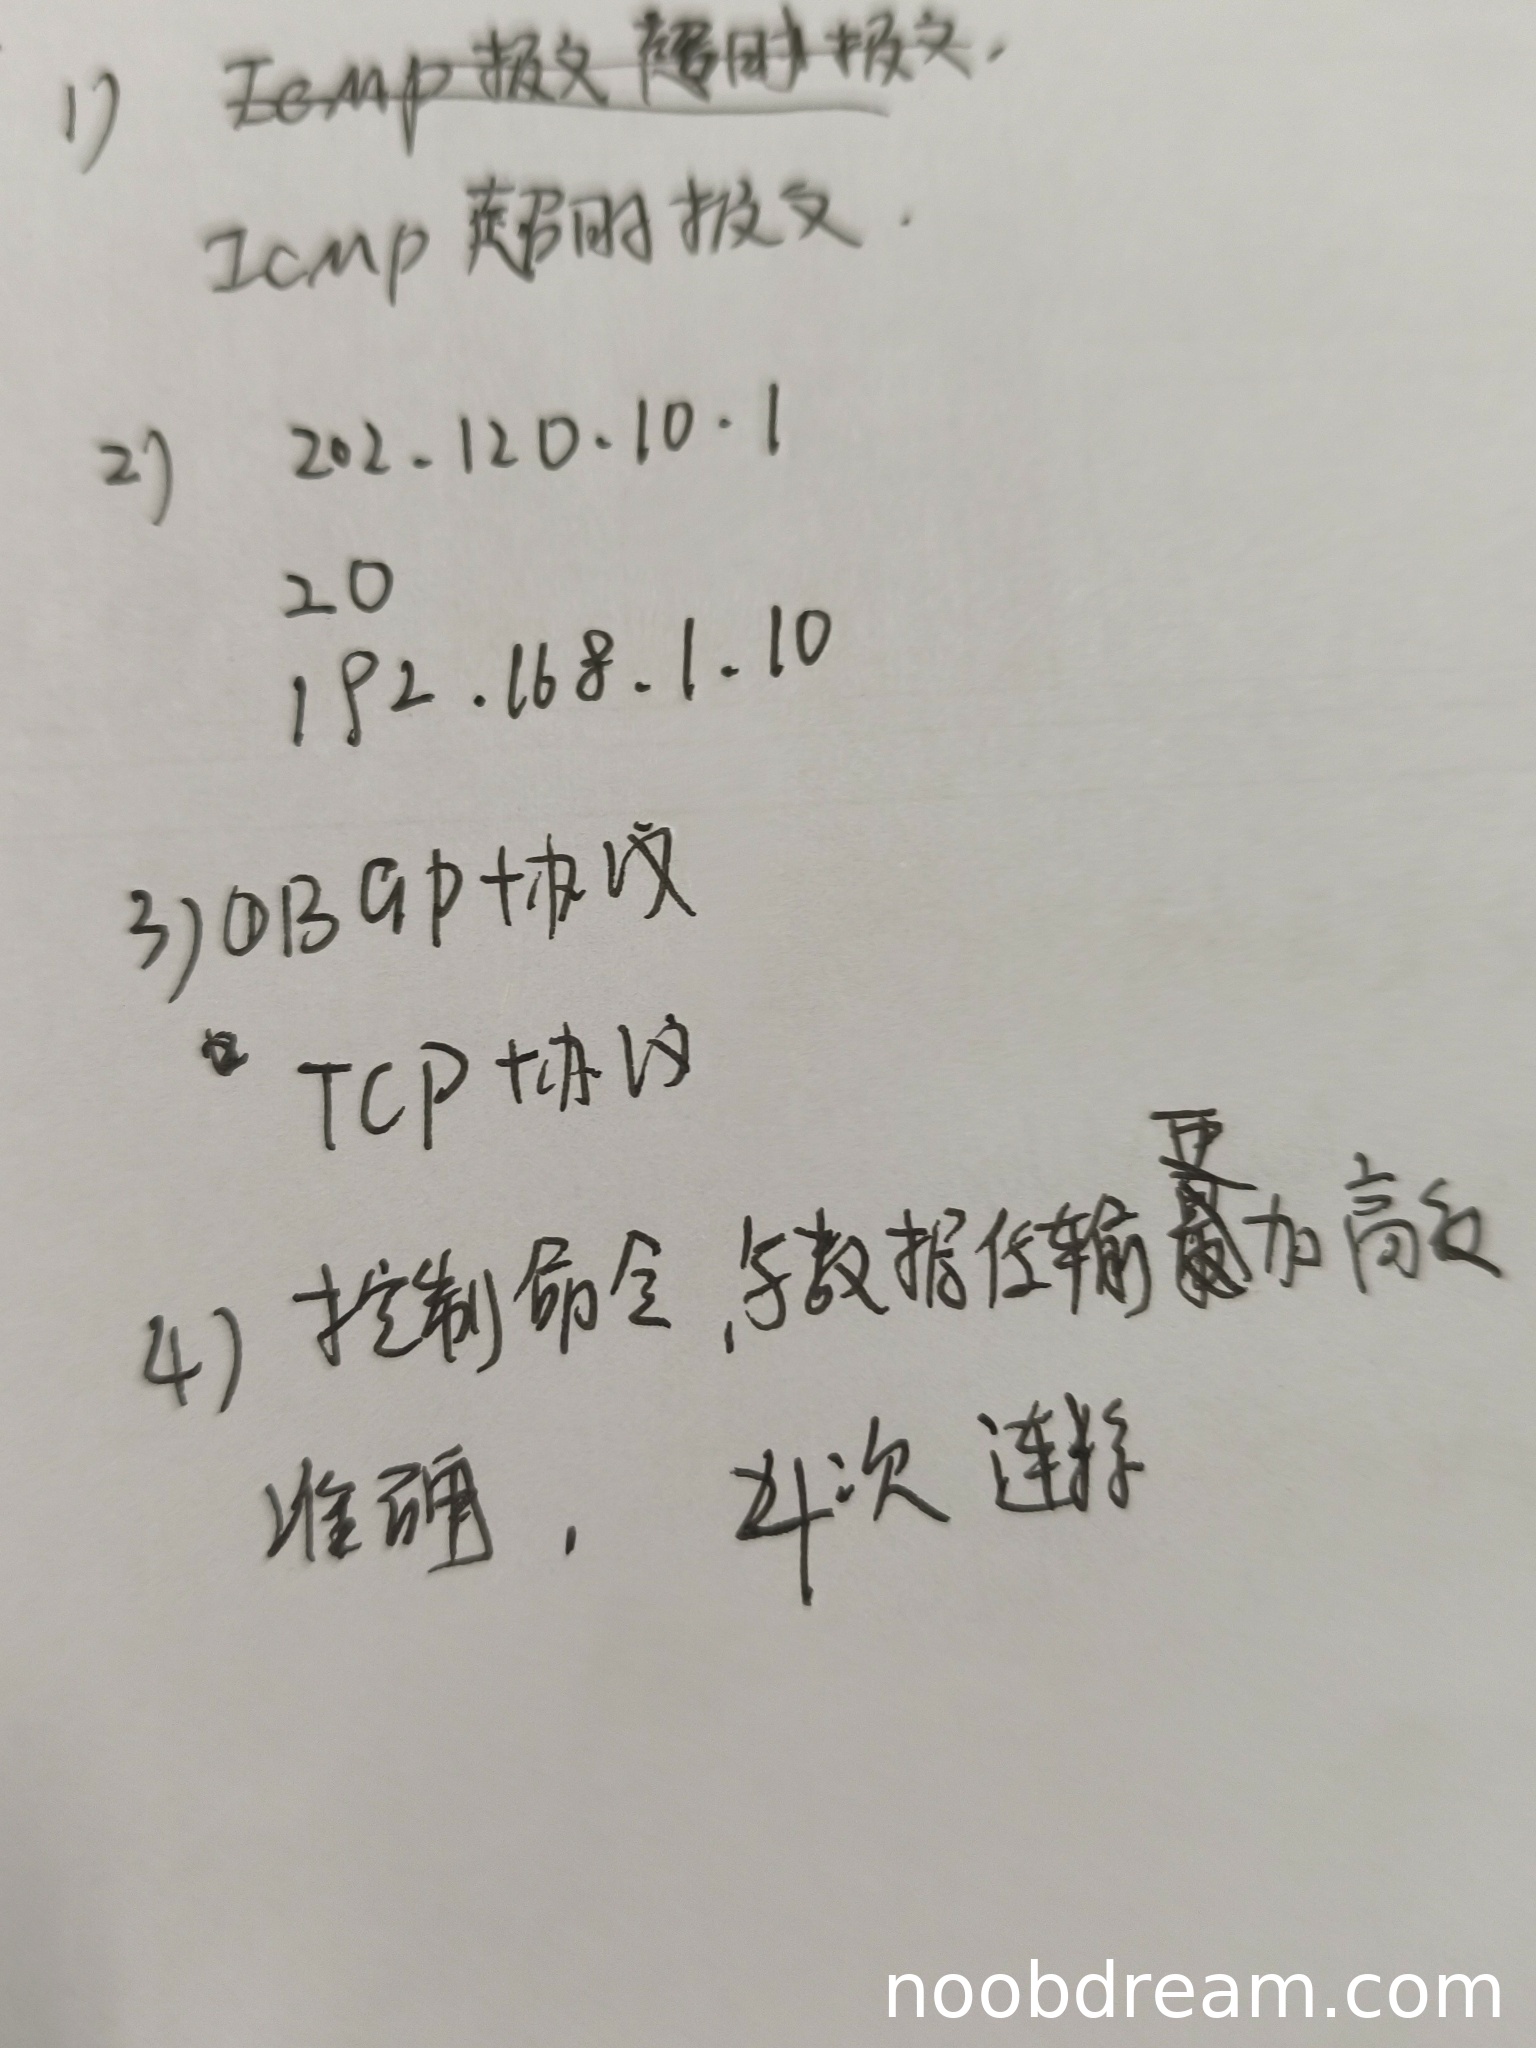 1) Icmp 报文 超时报文.
Icmp 超时报文.
2) 202.120.10.1
20
192.168.1.10
3) ① BGP协议
TCP协议
4) 控制命令,与数据传输更加高效
准确, 4次 连接
noobdream.com